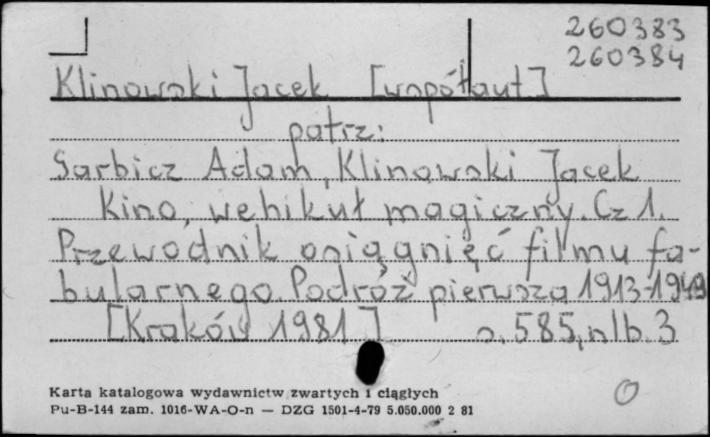 260383
260384
Klinowski Jacek [współaut.]
patrz:
Garbicz Adam, Klinowski Jacek
Kino, wehikuł magiczny. Cz 1.
Przewodnik osiągnięć filmu fa-
bularnego. Podróż pierwsza 1913-1949
[Kraków 1981] s. 585, nlb. 3
Karta katalogowa wydawnictw zwartych i ciągłych
Pu-B-144 zam. 1016-WA-O-n — DZG 1501-4-79 5.050.000 2 81
O